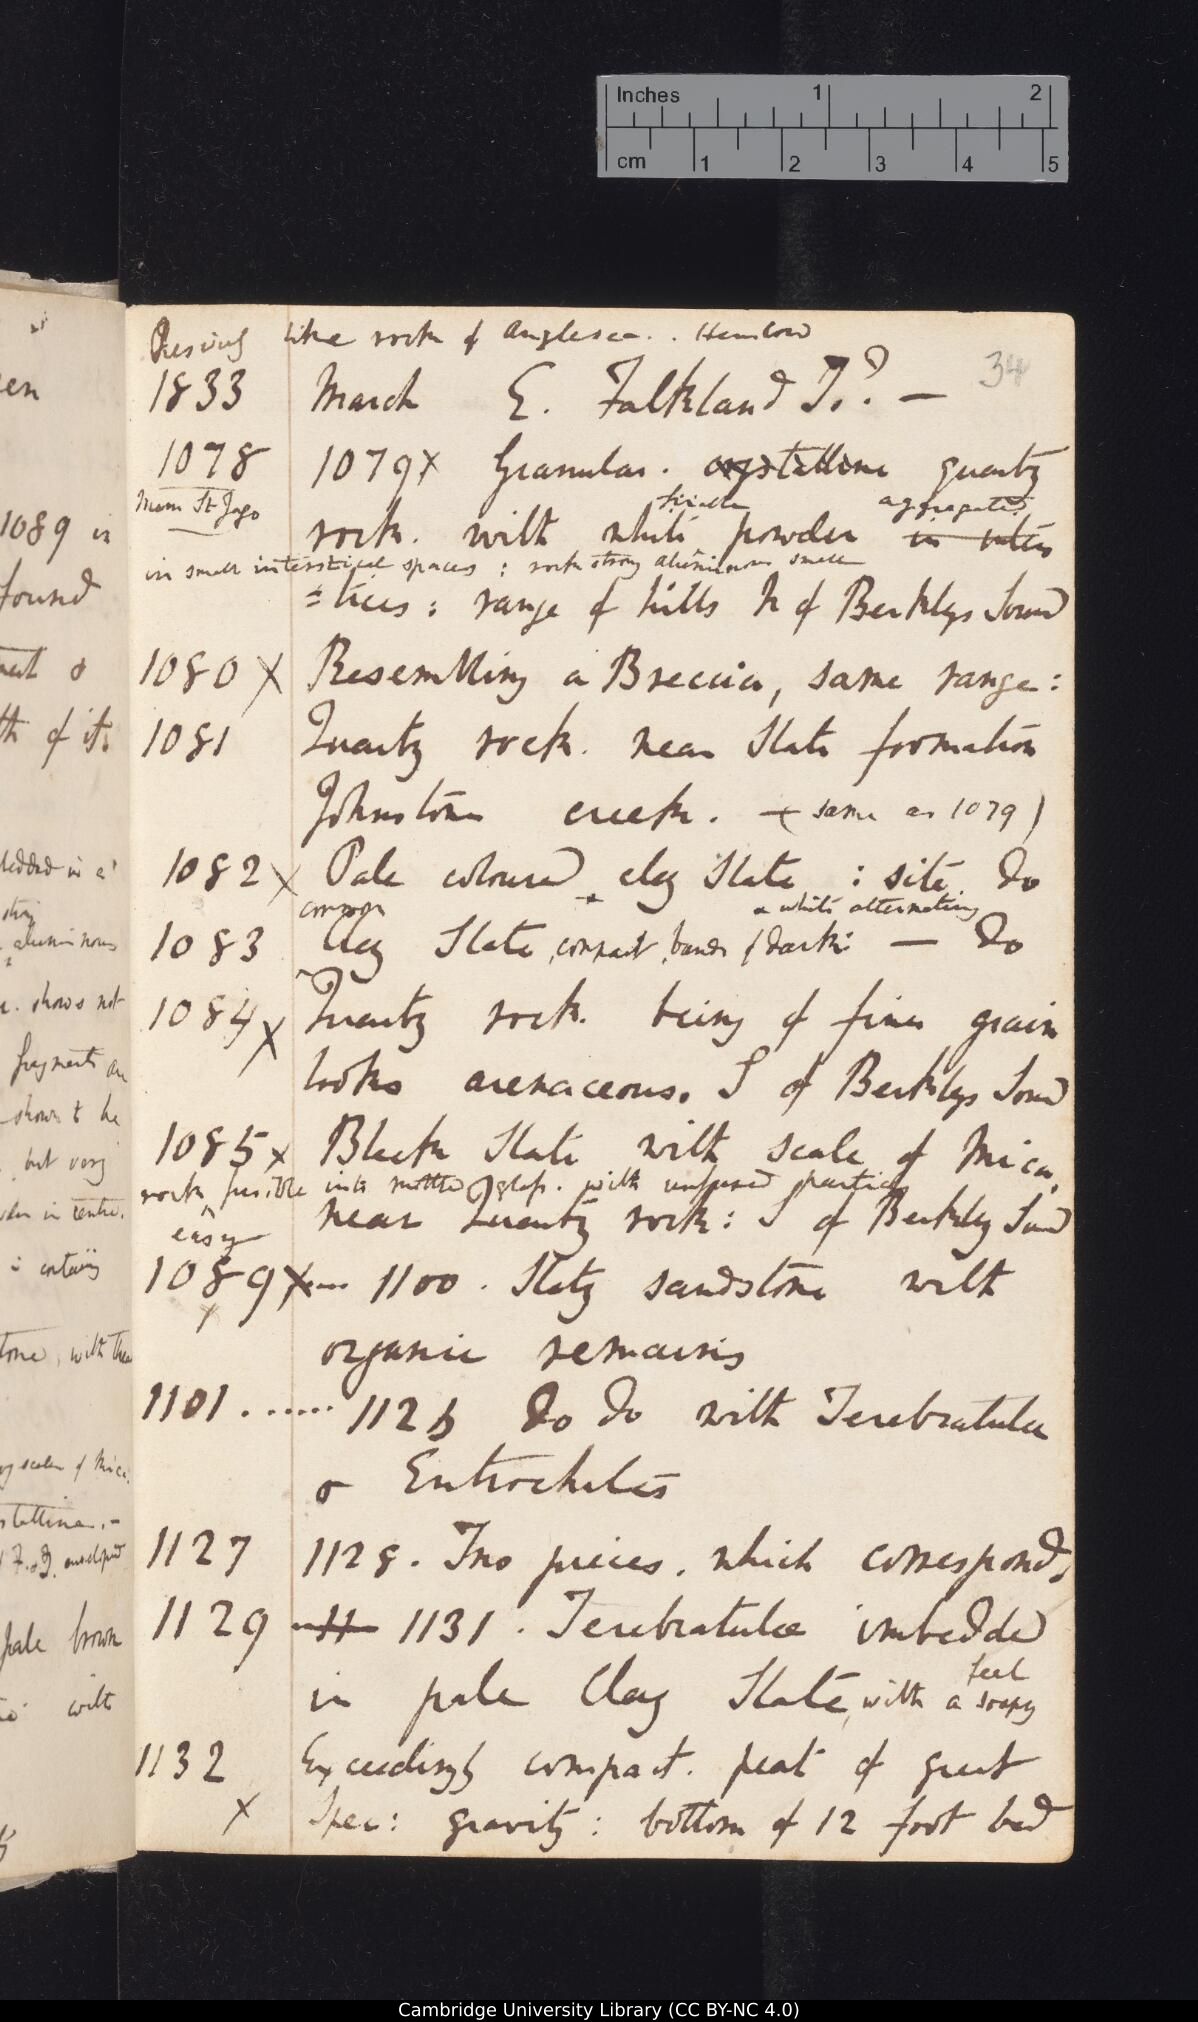 Inches 1 2
cm 1 2 3 4 5
like rock of Anglesea. . Henslow
34
1833 March E. Falkland Id? —
1078 1079X Granular. crystalline quartz
Mem St Jago
friable aggregated
rock. with white powder in inters
in small interstical spaces : rock strong aluminous smell
=tices : range of hills N of Berkleys Sound
1080 X Resembling a Breccia, same range :
1081 Quartz rock. near Slate formation
Johnstone creek. — (same as 1079)
1082 X Pale coloured clay Slate : site. Do
common & white alternating
1083 Clay Slate, compact, bands (dark: — Do
1084 X Quartz rock. being of finer grain
looks arenaceous. S of Berkleys Sound
1085 X Black Slate with scale of Mica,
rock fusible into mottled glass. with unfused particles
near Quartz rock: S of Berkley Sound
easy
1089 X — 1100. Slaty sandstone with
X
organic remains
1101 ...... 1126 Do Do with Terebratulae
& Entrochites
1127 1128. Two pieces. which correspond.
1129 1131. Terebratulae imbedded
feel
in pale Clay Slate, with a soapy
1132 Exceedingly compact. peat of great
X Spec: gravity: bottom of 12 foot bed
en
1089 in
found
th of its
bedded in a
aluminous
shows not
fragments are
shown to be
but very
in centre.
containing
with these
scales of Mica.
stalline. -
pale brown
with
Cambridge University Library (CC BY-NC 4.0)